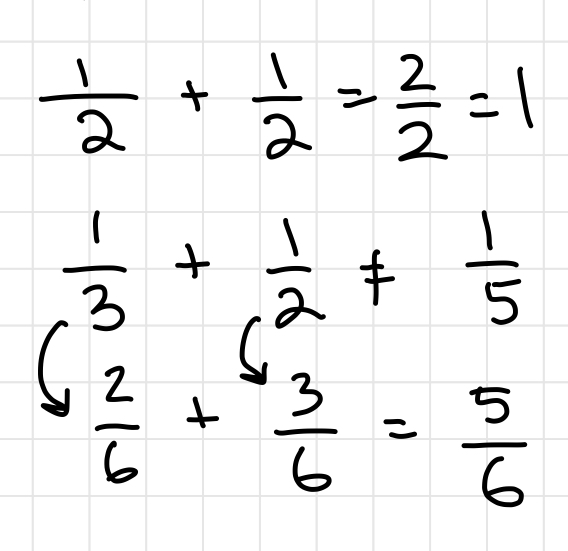 1/2 + 1/2 = 2/2 = 1
1/3 + 1/2 ≠ 1/5
2/6 + 3/6 = 5/6